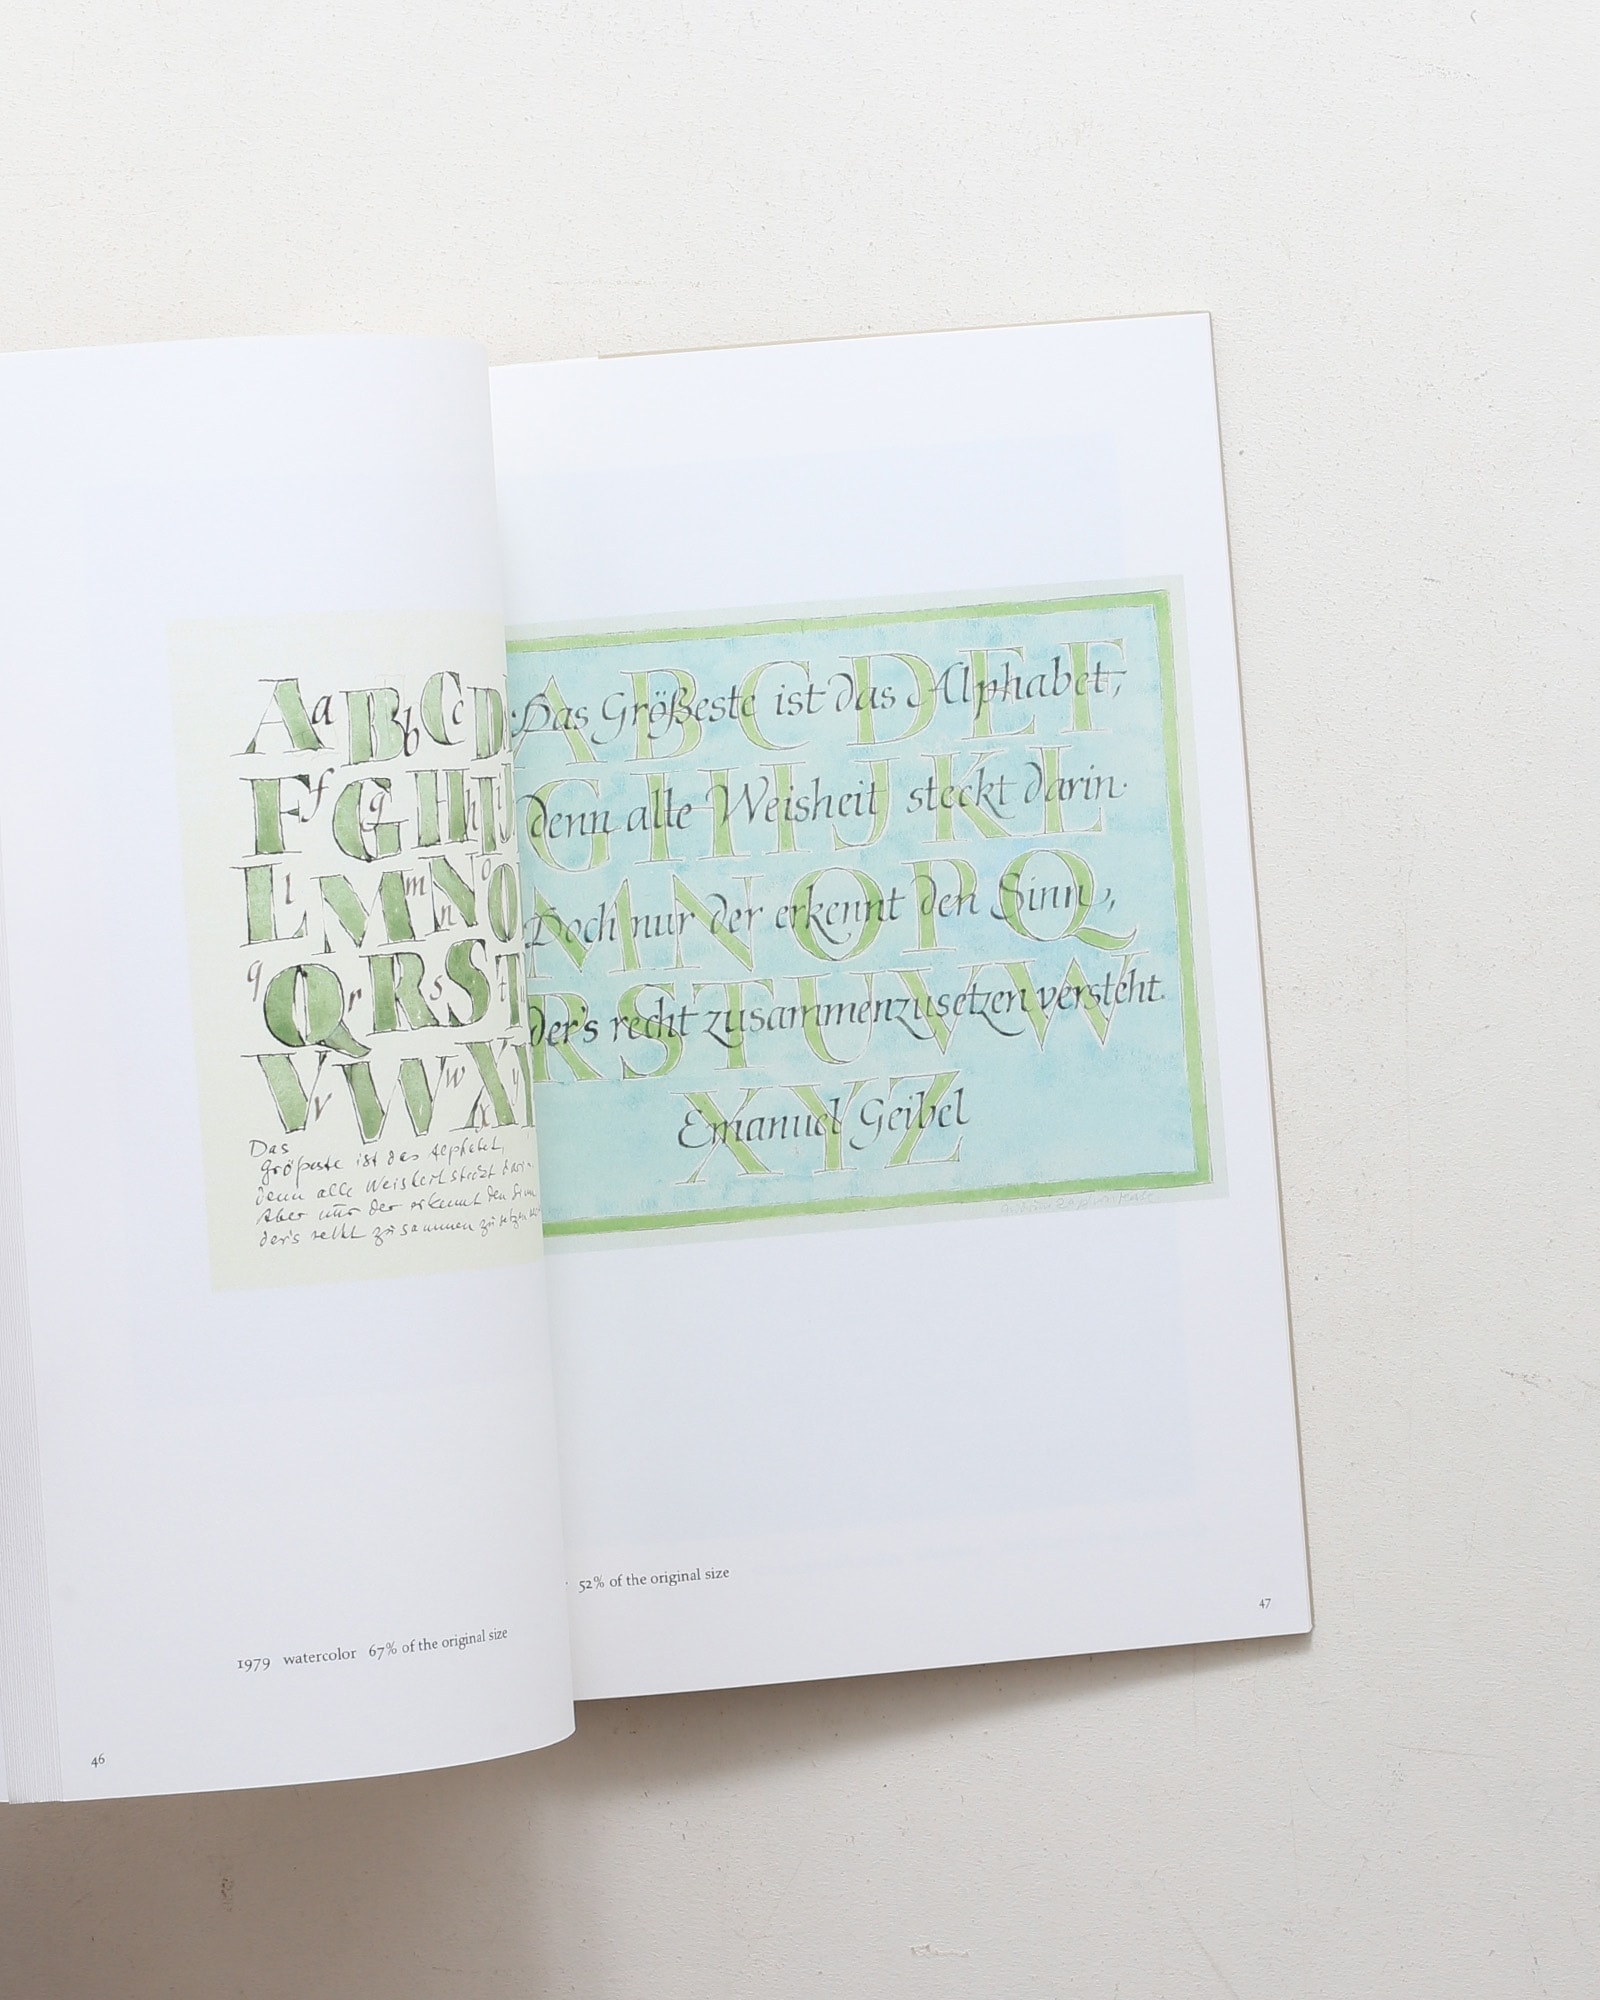 A a B b C c D
F f G g H h I i J
L l M m N n O o
q Q r R s S t T
V v W w X x y
Das
Größeste ist das Alphabet,
denn alle Weisheit steckt darin.
Aber nur der erkennt den Sinn
der's recht zusammenzusetzen
1979 watercolor 67% of the original size
46
A B C D E F
Das Größeste ist das Alphabet,
G H I J K L
denn alle Weisheit steckt darin.
M N O P Q
Doch nur der erkennt den Sinn,
R S T U V W
der's recht zusammenzusetzen versteht.
X Y Z
Emanuel Geibel
52% of the original size
47